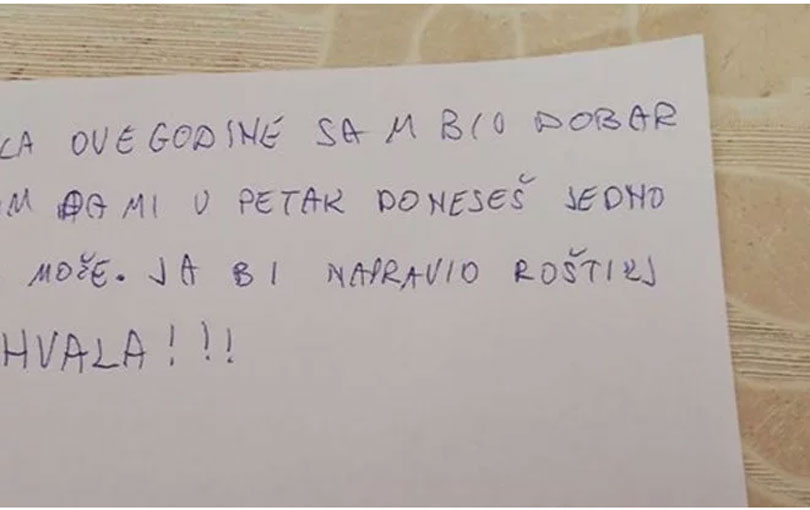 CA OVE GODINE SAM BIO DOBAR
M DA MI U PETAK DONESEŠ JEDNO
MOŽE. JA BI NAPRAVIO ROŠTILJ
HVALA!!!